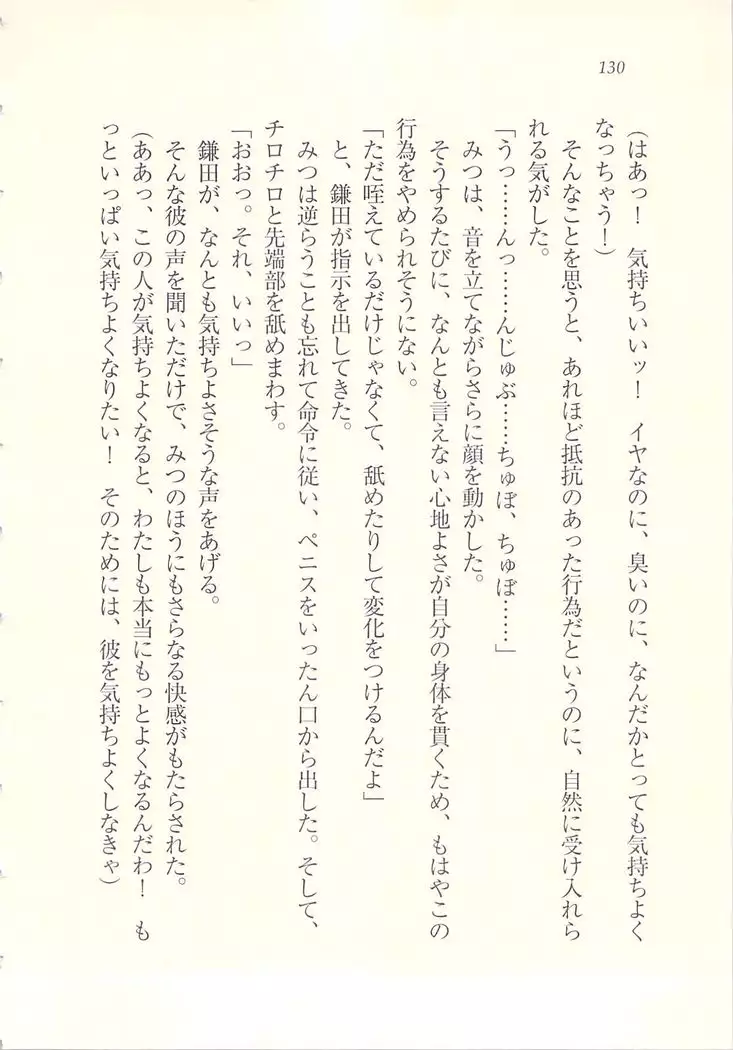 130
（はあっ！　気持ちいいッ！　イヤなのに、臭いのに、なんだかとっても気持ちよく
なっちゃう！）
　そんなことを思うと、あれほど抵抗のあった行為だというのに、自然に受け入れら
れる気がした。
「うっ……んっ……んじゅぶ……ちゅぼ、ちゅぼ……」
　みつは、音を立てながらさらに顔を動かした。
　そうするたびに、なんとも言えない心地よさが自分の身体を貫くため、もはやこの
行為をやめられそうにない。
「ただ咥えているだけじゃなくて、舐めたりして変化をつけるんだよ」
　と、鎌田が指示を出してきた。
　みつは逆らうことも忘れて命令に従い、ペニスをいったん口から出した。そして、
チロチロと先端部を舐めまわす。
「おおっ。それ、いいっ」
　鎌田が、なんとも気持ちよさそうな声をあげる。
　そんな彼の声を聞いただけで、みつのほうにもさらなる快感がもたらされた。
（ああっ、この人が気持ちよくなると、わたしも本当にもっとよくなるんだわ！　も
っといっぱい気持ちよくなりたい！　そのためには、彼を気持ちよくしなきゃ）